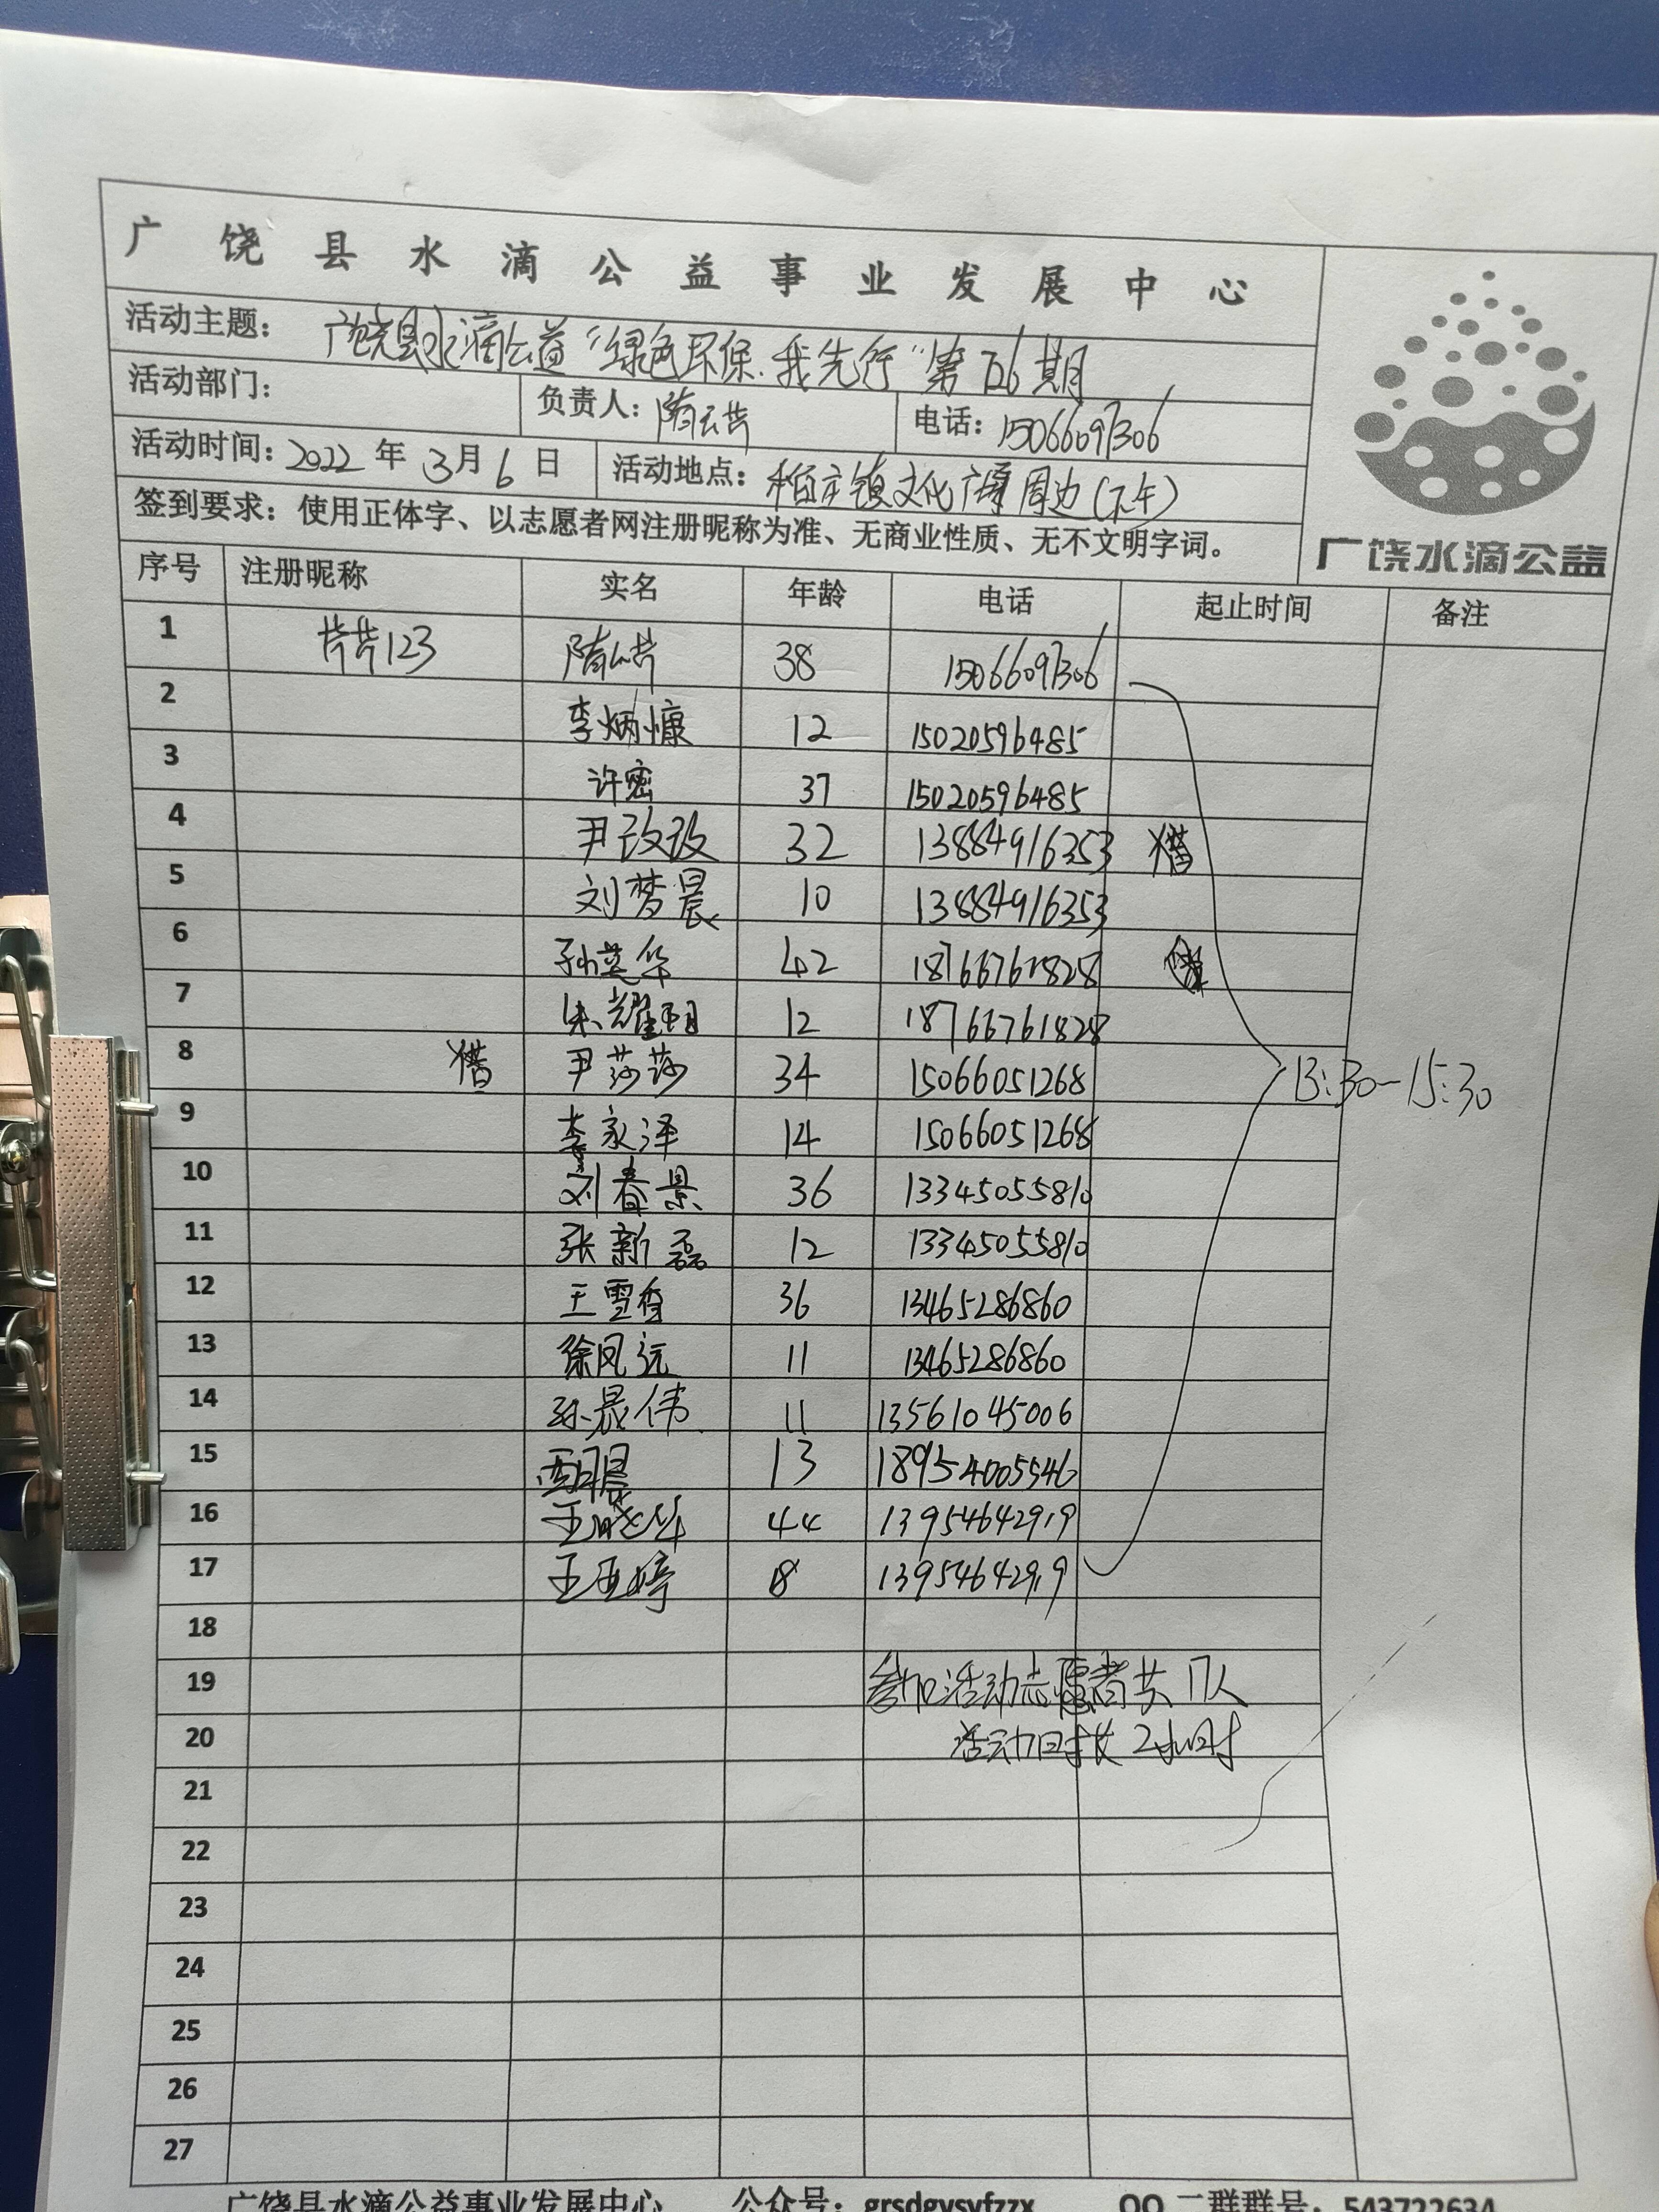 广饶县水滴公益事业发展中心
活动主题：广饶县水滴公益“绿色环保.我先行”第726期
活动部门： 负责人：隋云芹 电话：15066091306
活动时间：2022年3月6日 活动地点：稻庄镇文化广场周边(下午)
签到要求：使用正体字、以志愿者网注册昵称为准、无商业性质、无不文明字词。
广饶水滴公益
序号 注册昵称 实名 年龄 电话 起止时间 备注
1 芹芹123 隋云芹 38 15066091306
2 李炳慷 12 15020596485
3 许密 37 15020596485
4 尹改改 32 13884916353
5 刘梦晨 10 13884916353
6 孙英华 42 18766761828
7 朱耀明 12 18766761828
8 尹莎莎 34 15066051268
13:30-15:30
9 李家泽 14 15066051268
10 刘春景 36 13345055810
11 张新磊 12 13345055810
12 王雪香 36 13465286860
13 徐凤远 11 13465286860
14 孙晟伟 11 13561045006
15 13 18954005546
16 王晓华 44 13954642919
17 王亚婷 8 13954642919
18
19 参加活动志愿者共17人
20 活动时长2小时
21
22
23
24
25
26
27
广饶县水滴公益事业发展中心 公众号：grsdgysyfzzx QQ二群群号：543722634